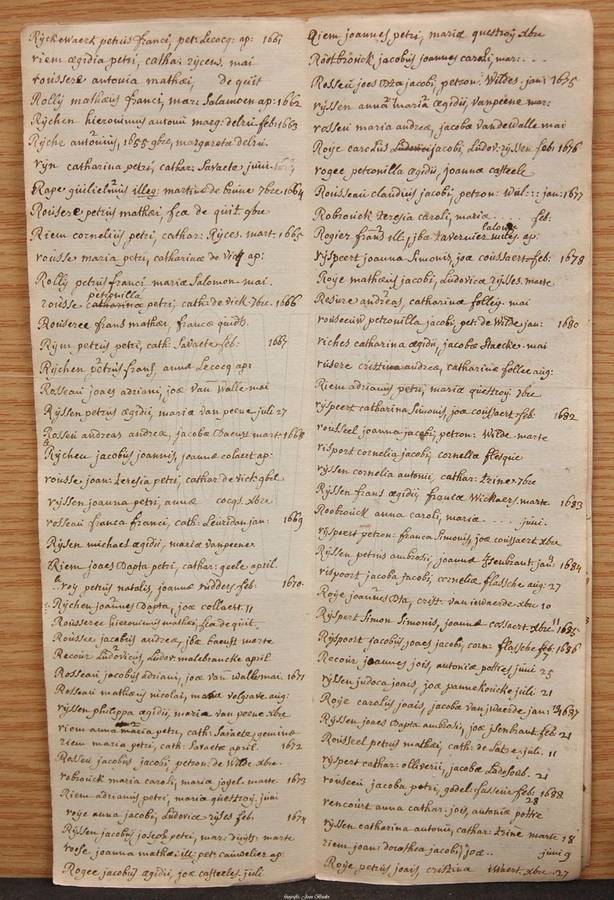 Rijchewaert petrus franci, petr. Lecocq: ap: 1661
riem ægidia petri, cathar. rijcens. mai
roussere antonia mathæi, de quit
Rollij mathæus franci, mar: Salamoen ap: 1662
Rijchen hieronimus antonii maeg: delrü. feb: 1663
Rijche antonius, 1655 9bre, margareta delrü.
vijn catharina petri, cathar: Savaete junii
Rape guilielmus illeg: martina de bune 7bre 1664
Rousere petrus mathæi, fca de quit 9bre
Riem cornelius petri, cathar: Rijces. mart. 1665
rousse maria petri, catharina de vick ap:
Rollij petrus franci maria Salomon. mai.
petronilla
rousse catharina petri, cath: de vick. 7bre. 1666
Rouseree frans mathæi, franca quidt.
Rijm petrus petri, cath: Savaete feb: 1667
Rijchen petrus frans, anna Lecocq ap:
Rosseau joaes adriani, joæ van Walle mai
Rijssen petrus ægidii, maria van peene juli 27
Rosseu andreas andreæ, jacoba Baeust mart. 1668
Rijchen jacobus joannis, joanna colaert ap:
rousse joan: teresia petri, cathar: de vick 9bre
vijssen joanna petri, anna cocqs. xbre
rosseau franca franci, cath: Leuridan jan: 1669
Rijsen michael ægidii, maria vanpeene
Riem joaes Bapta petri, cathar: geele april
roij petrus natalis, joanna rudders. feb: 1670
Rijchen joannes Bapta, joa collaert. 11
Rousseree hieronimus mathæi, fca de quit.
Rousseu jacobus andreæ, jba baeust marte
Recour Ludovicus, Ludov: malebrancke april
Rosseau jacobus adriani, joæ van Walle mai 1671
Rosseau mathæus nicolai, volgrave aug:
vijssen philippa ægidii, maria van peene xbre
riem anna maria petri, cath. Savaete, gemina
riem maria petri, cath: Savaete april. 1672
Rosseu jacobus jacobi, petron: de Wilde xbr.
robrouck maria caroli, maria joijel. marte 1673
Riem adrianus petri, maria questroij. junii
roije anna jacobi, Ludovica rijses feb. 1674
Rijssen jacobus joseph petri, mar: duijts: marte
rose joanna mathæi ill: petr: cauwelier ap:
Rogee jacobus ægidii, joæ casteeles juli
Riem joannes petri, maria questroij xbre
Roetbrouck jacobus joannes caroli, mar: . . .
Rosseu joes Bta jacobi, petron: Wildes. jan: 1675
vijssen anna maria ægidii, vanpeene mar:
rosseu maria andreæ, jacoba Vandewalle mai
Roije carolus jacobi, Ludov: rijssen feb: 1676
rogee petronilla ægidii, joanna casteele
Rousseau claudius jacobi, petron: Wul:: jan: 1677
Robrouck teresia caroli, maria . . . . feb:
Rogier frans ill, jba tavernier ap:
rijspeert joanna Simonis, joæ coussaert feb: 1678
Roije mathæus jacobi, Ludovica rijsses. marte
Resure andreas, catharina folleij. mai
rousseeuw petronilla jacobi, pet: de Wilde jan: 1680
riches catharina ægidii, jacoba Staecker. mai
rusere cristina andreæ, catharina follee aug:
Riem adrianus petri, maria questroij. 7bre
rijspeert catharina Simonis, joæ coussaert feb: 1682
rousseel joanna jacobi, petron: Wilde marte
risport cornelia jacobi, cornelia flesque
vijssen cornelia antonii, cathar: tzine 7bre
Rijssen frans ægidii, franca Wickaers. marte 1683
Roobrouck anna caroli, maria . . . . junii.
rijspeert petron: franca Simonis, joæ coussaert xbre
Rijssen petrus ambrosii, joanna Jsenbrant jan: 1684
rispoort jacoba jacobi, cornelia flassche aug: 27
Roije joannes Bta, crist: van iewaerde xbr 10
Rijspert Simon Simonis, joannæ cossaert xbre 11 1685
Rijspoort jacobus joaes jacobi, corn: flassche feb. 1686
Recour joannes jois, antonia pottes junii 25
rijssen judoca joais, joæ pannekoucke juli: 21
Roije carolus joais, jacoba van jwaerde jan: 1687
Rijssen joaes Bapta ambrosii, joæ jsenbrant feb: 21
Rousseel petrus mathæi, cath: de Latze. juli. 11
rijspert cathar: olliverii, jacoba Ladesous. 21
rousseeu jacoba petri, godel: fasseur feb: 1688
rencourt anna cathar: jois, antonia pottre 28
vijssen catharina antonii, cathar: tzine marte 18
riem joan: dorothea jacobi, joæ . . junii 9
Roije petrus joais, cristina iwaert. xbr. 27